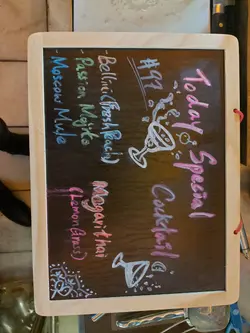 Today Spesial
Cocktail
#97
- Bellini (Fresh Peach)
- Passion Mojito
- Moscow Mule
Magarithai
(Lemon Grass)